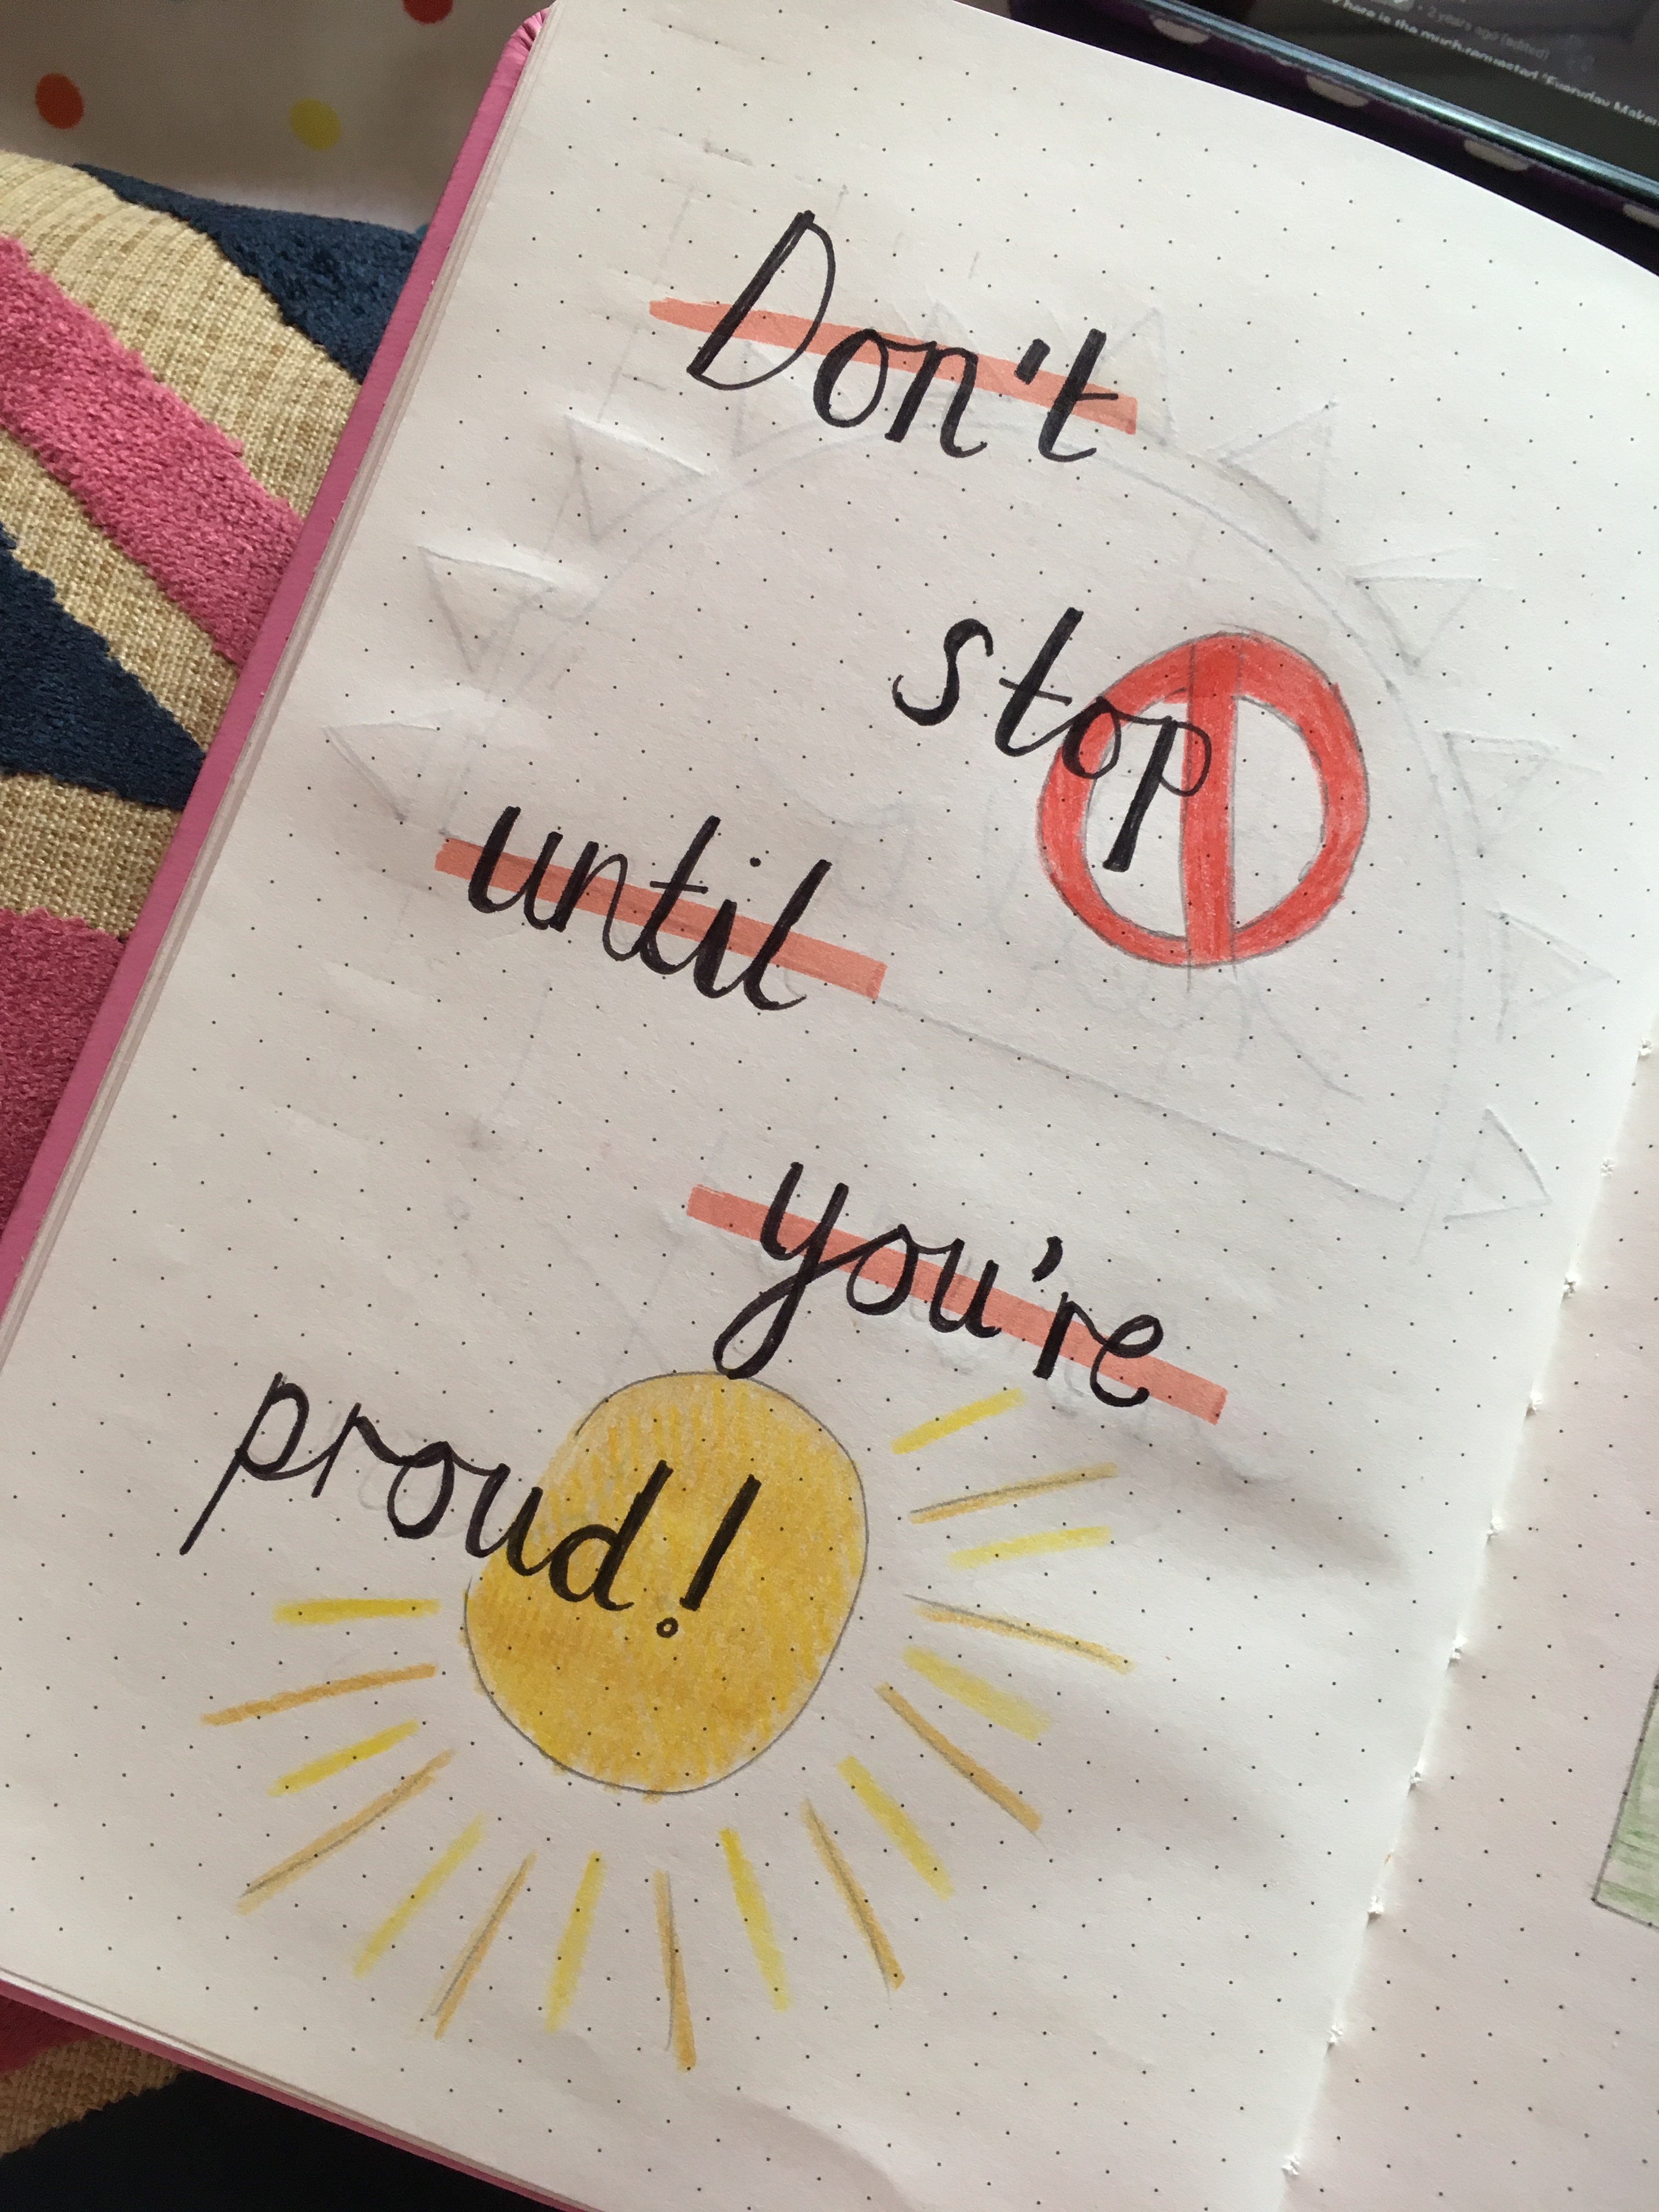 2 years ago (edited)
here is the much requested "Everyday
Don't
stop
until
you're
proud!